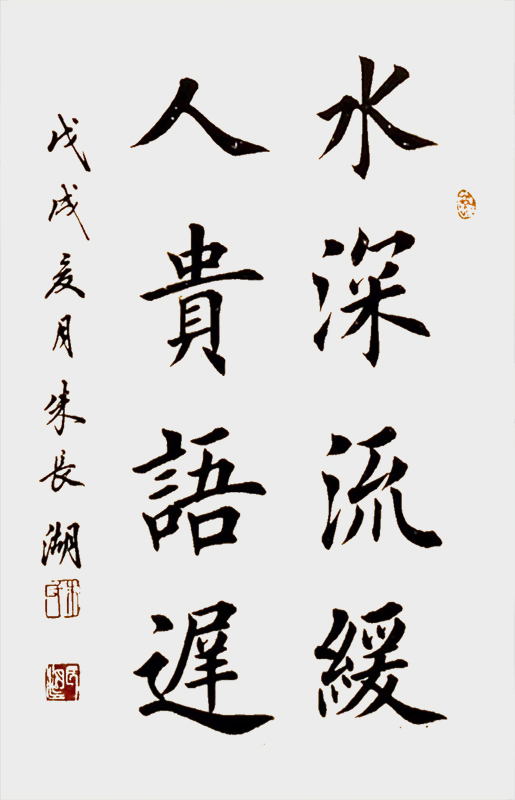 水深流緩
人貴語遲
戊戌夏月朱長湖